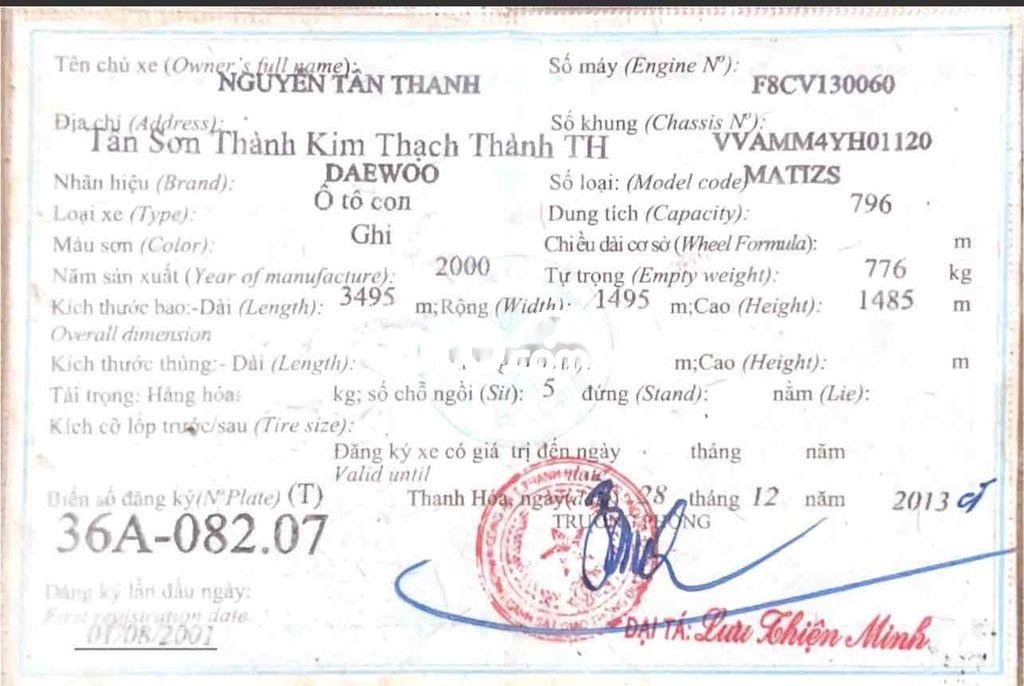 Tên chủ xe (Owner's full name): NGUYỄN TẤN THANH
Số máy (Engine Nº): F8CV130060
Địa chỉ (Address): Tân Sơn Thành Kim Thạch Thành TH
Số khung (Chassis Nº): VVAMM4YH01120
Nhãn hiệu (Brand): DAEWOO
Số loại: (Model code) MATIZS
Loại xe (Type): Ô tô con
Dung tích (Capacity): 796
Màu sơn (Color): Ghi
Chiều dài cơ sở (Wheel Formula): m
Năm sản xuất (Year of manufacture): 2000
Tự trọng (Empty weight): 776 kg
Kích thước bao:-Dài (Length): 3495 m;Rộng (Width): 1495 m;Cao (Height): 1485 m
Overall dimension
Kích thước thùng:- Dài (Length): m;Cao (Height): m
Tải trọng: Hàng hóa: kg; số chỗ ngồi (Sit): 5 đứng (Stand): nằm (Lie):
Kích cỡ lốp trước/sau (Tire size):
Đăng ký xe có giá trị đến ngày tháng năm
Valid until
Biển số đăng ký(NºPlate) (T)
36A-082.07
Thanh Hóa, ngày 28 tháng 12 năm 2013
TRƯỞNG PHÒNG
Đăng ký lần đầu ngày:
First registration date
01/08/2001
ĐẠI TÁ: Lưu Thiện Minh